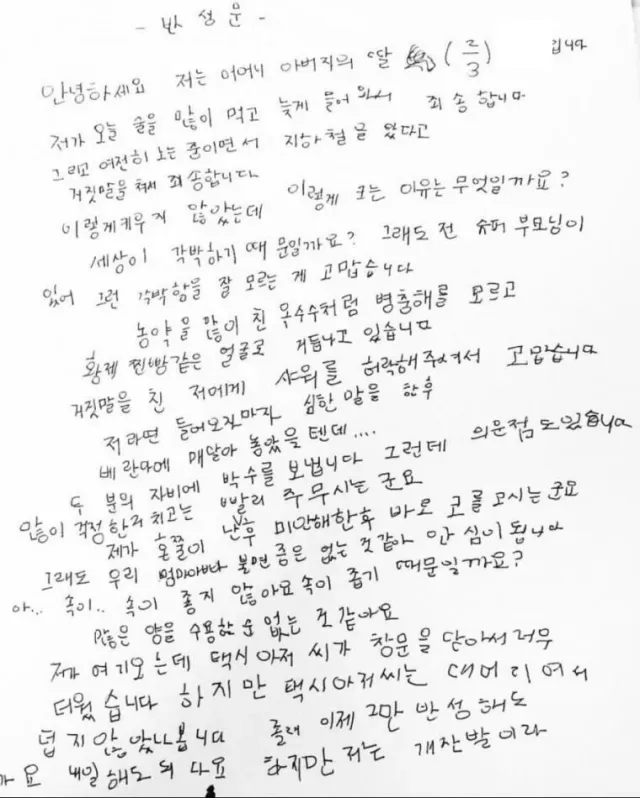 - 반성문 -
안녕하세요 저는 어머니 아버지의 딸 (2/3) 입니다
저가 오늘 술을 많이 먹고 늦게 들어와서 죄송합니다
그리고 여전히 노는 중이면서 지하철을 왔다고
거짓말을 쳐서 죄송합니다
이렇게 키우지 않았는데 이렇게 크는 이유는 무엇일까요?
세상이 각박하기 때문일까요? 그래도 전 슈퍼 부모님이
있어 그런 각박함을 잘 모르는 게 고맙습니다
농약을 많이 친 옥수수처럼 병충해를 모르고
황제 찐빵같은 얼굴로 거듭나고 있습니다
거짓말을 친 저에게 샤워를 허락해주셔서 고맙습니다
저라면 들어오자마자 심한 말을 한후
베란다에 매달아 놓았을 텐데....
두 분의 자비에 박수를 보냅니다 그런데 의문점도있습니다
많이 걱정한거 치고는 빨리 주무시는 군요
제가 혼쭐이 난후 미안해한후 바로 코를 고시는 군요
그래도 우리 엄마아빠 불면증은 없는 것 같아 안심이 됩니다
아... 속이.. 속이 좋지 않아요 속이 좁기 때문일까요?
많은 양을 수용할 순 없는 것 같아요
제가 여기오는데 택시아저씨가 창문을 닫아서 너무
더웠습니다 하지만 택시아저씨는 대머리여서
덥지 않았나봅니다 졸려 이제 그만 반성해도
까요 내일 해도 되 다요 하지만 저는 개잔발이라